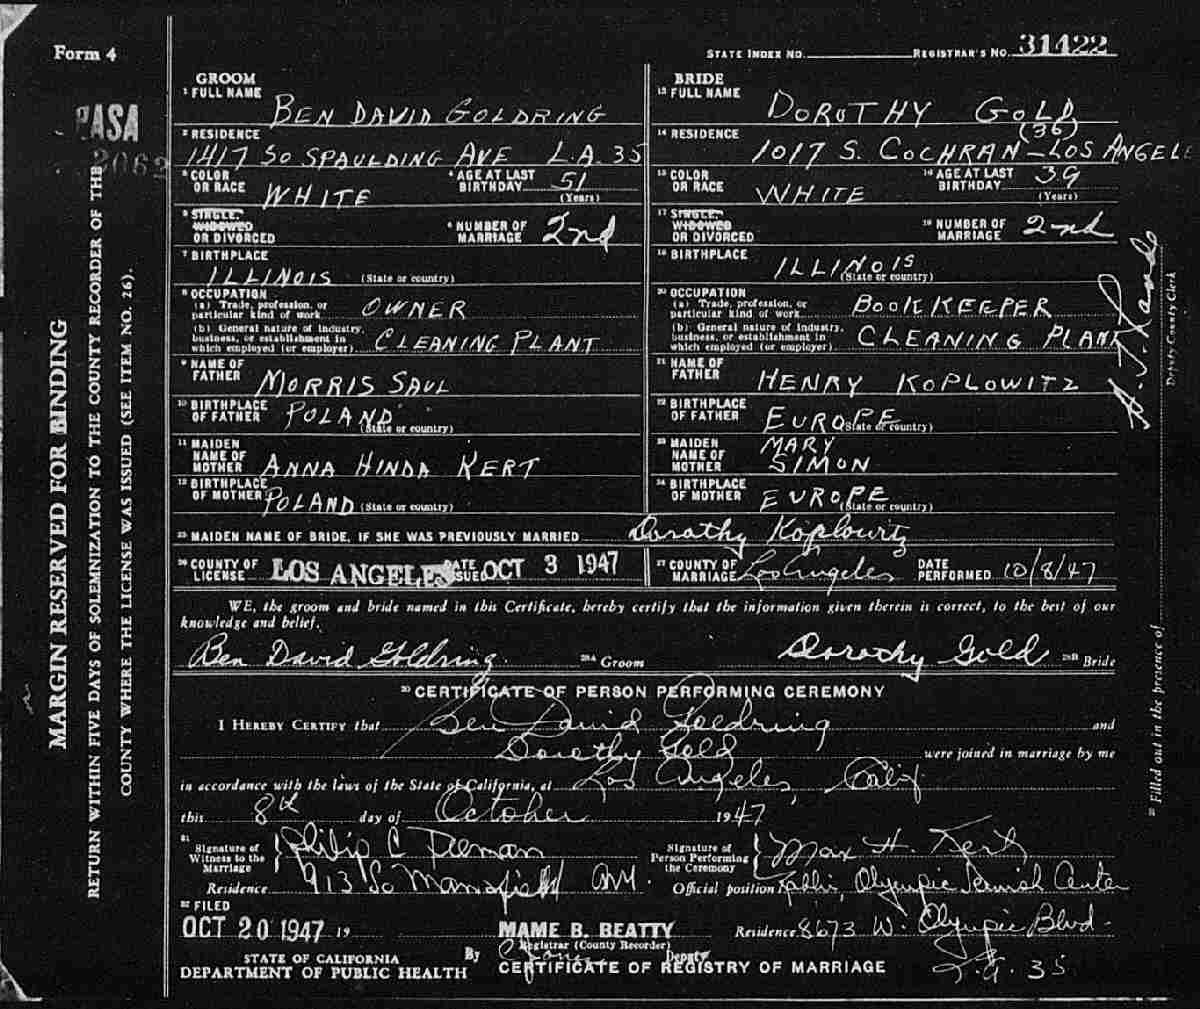 Form 4
STATE INDEX NO. REGISTRAR'S NO. 31422
GROOM
1 FULL NAME BEN DAVID GOLDRING
2 RESIDENCE
1417 SO SPAULDING AVE L.A. 35
3 COLOR OR RACE WHITE 4 AGE AT LAST BIRTHDAY 51 (Years)
5 SINGLE, WIDOWED OR DIVORCED 6 NUMBER OF MARRIAGE 2nd
7 BIRTHPLACE
ILLINOIS (State or country)
8 OCCUPATION
(a) Trade, profession, or particular kind of work OWNER
(b) General nature of industry, business, or establishment in which employed (or employer) CLEANING PLANT
9 NAME OF FATHER MORRIS SAUL
10 BIRTHPLACE OF FATHER POLAND (State or country)
11 MAIDEN NAME OF MOTHER ANNA HINDA KERT
12 BIRTHPLACE OF MOTHER POLAND (State or country)
BRIDE
13 FULL NAME DOROTHY GOLD
14 RESIDENCE (36)
1017 S. COCHRAN - LOS ANGELE
15 COLOR OR RACE WHITE 16 AGE AT LAST BIRTHDAY 39 (Years)
17 SINGLE, WIDOWED OR DIVORCED 18 NUMBER OF MARRIAGE 2nd
19 BIRTHPLACE
ILLINOIS (State or country)
20 OCCUPATION
(a) Trade, profession, or particular kind of work BOOKKEEPER
(b) General nature of industry, business, or establishment in which employed (or employer) CLEANING PLANT
21 NAME OF FATHER HENRY KOPLOWITZ
22 BIRTHPLACE OF FATHER EUROPE (State or country)
23 MAIDEN NAME OF MOTHER MARY SIMON
24 BIRTHPLACE OF MOTHER EUROPE (State or country)
25 MAIDEN NAME OF BRIDE, IF SHE WAS PREVIOUSLY MARRIED Dorothy Koplowitz
26 COUNTY OF LICENSE LOS ANGELES DATE ISSUED OCT 3 1947 27 COUNTY OF MARRIAGE Los Angeles DATE PERFORMED 10/8/47
WE, the groom and bride named in this Certificate, hereby certify that the information given therein is correct, to the best of our
knowledge and belief.
Ben David Goldring 28A Groom Dorothy Gold 28B Bride
30 CERTIFICATE OF PERSON PERFORMING CEREMONY
I HEREBY CERTIFY that Ben David Goldring and
Dorothy Gold were joined in marriage by me
in accordance with the laws of the State of California, at Los Angeles, Calif
this 8th day of October 1947
31 Signature of Witness to the Marriage Philip C
Signature of Person Performing the Ceremony Max H. Kert
Residence 913 So Mansfield Ave. Official position Rabbi, Olympic Jewish Center
32 FILED
OCT 20 1947 19 MAME B. BEATTY Residence 8673 W. Olympic Blvd.
Registrar (County Recorder)
STATE OF CALIFORNIA By Deputy
DEPARTMENT OF PUBLIC HEALTH CERTIFICATE OF REGISTRY OF MARRIAGE L.A. 35
MARGIN RESERVED FOR BINDING
RETURN WITHIN FIVE DAYS OF SOLEMNIZATION TO THE COUNTY RECORDER OF THE
COUNTY WHERE THE LICENSE WAS ISSUED (SEE ITEM NO. 26).
PASA
2062
29 Filled out in the presence of
Deputy County Clerk